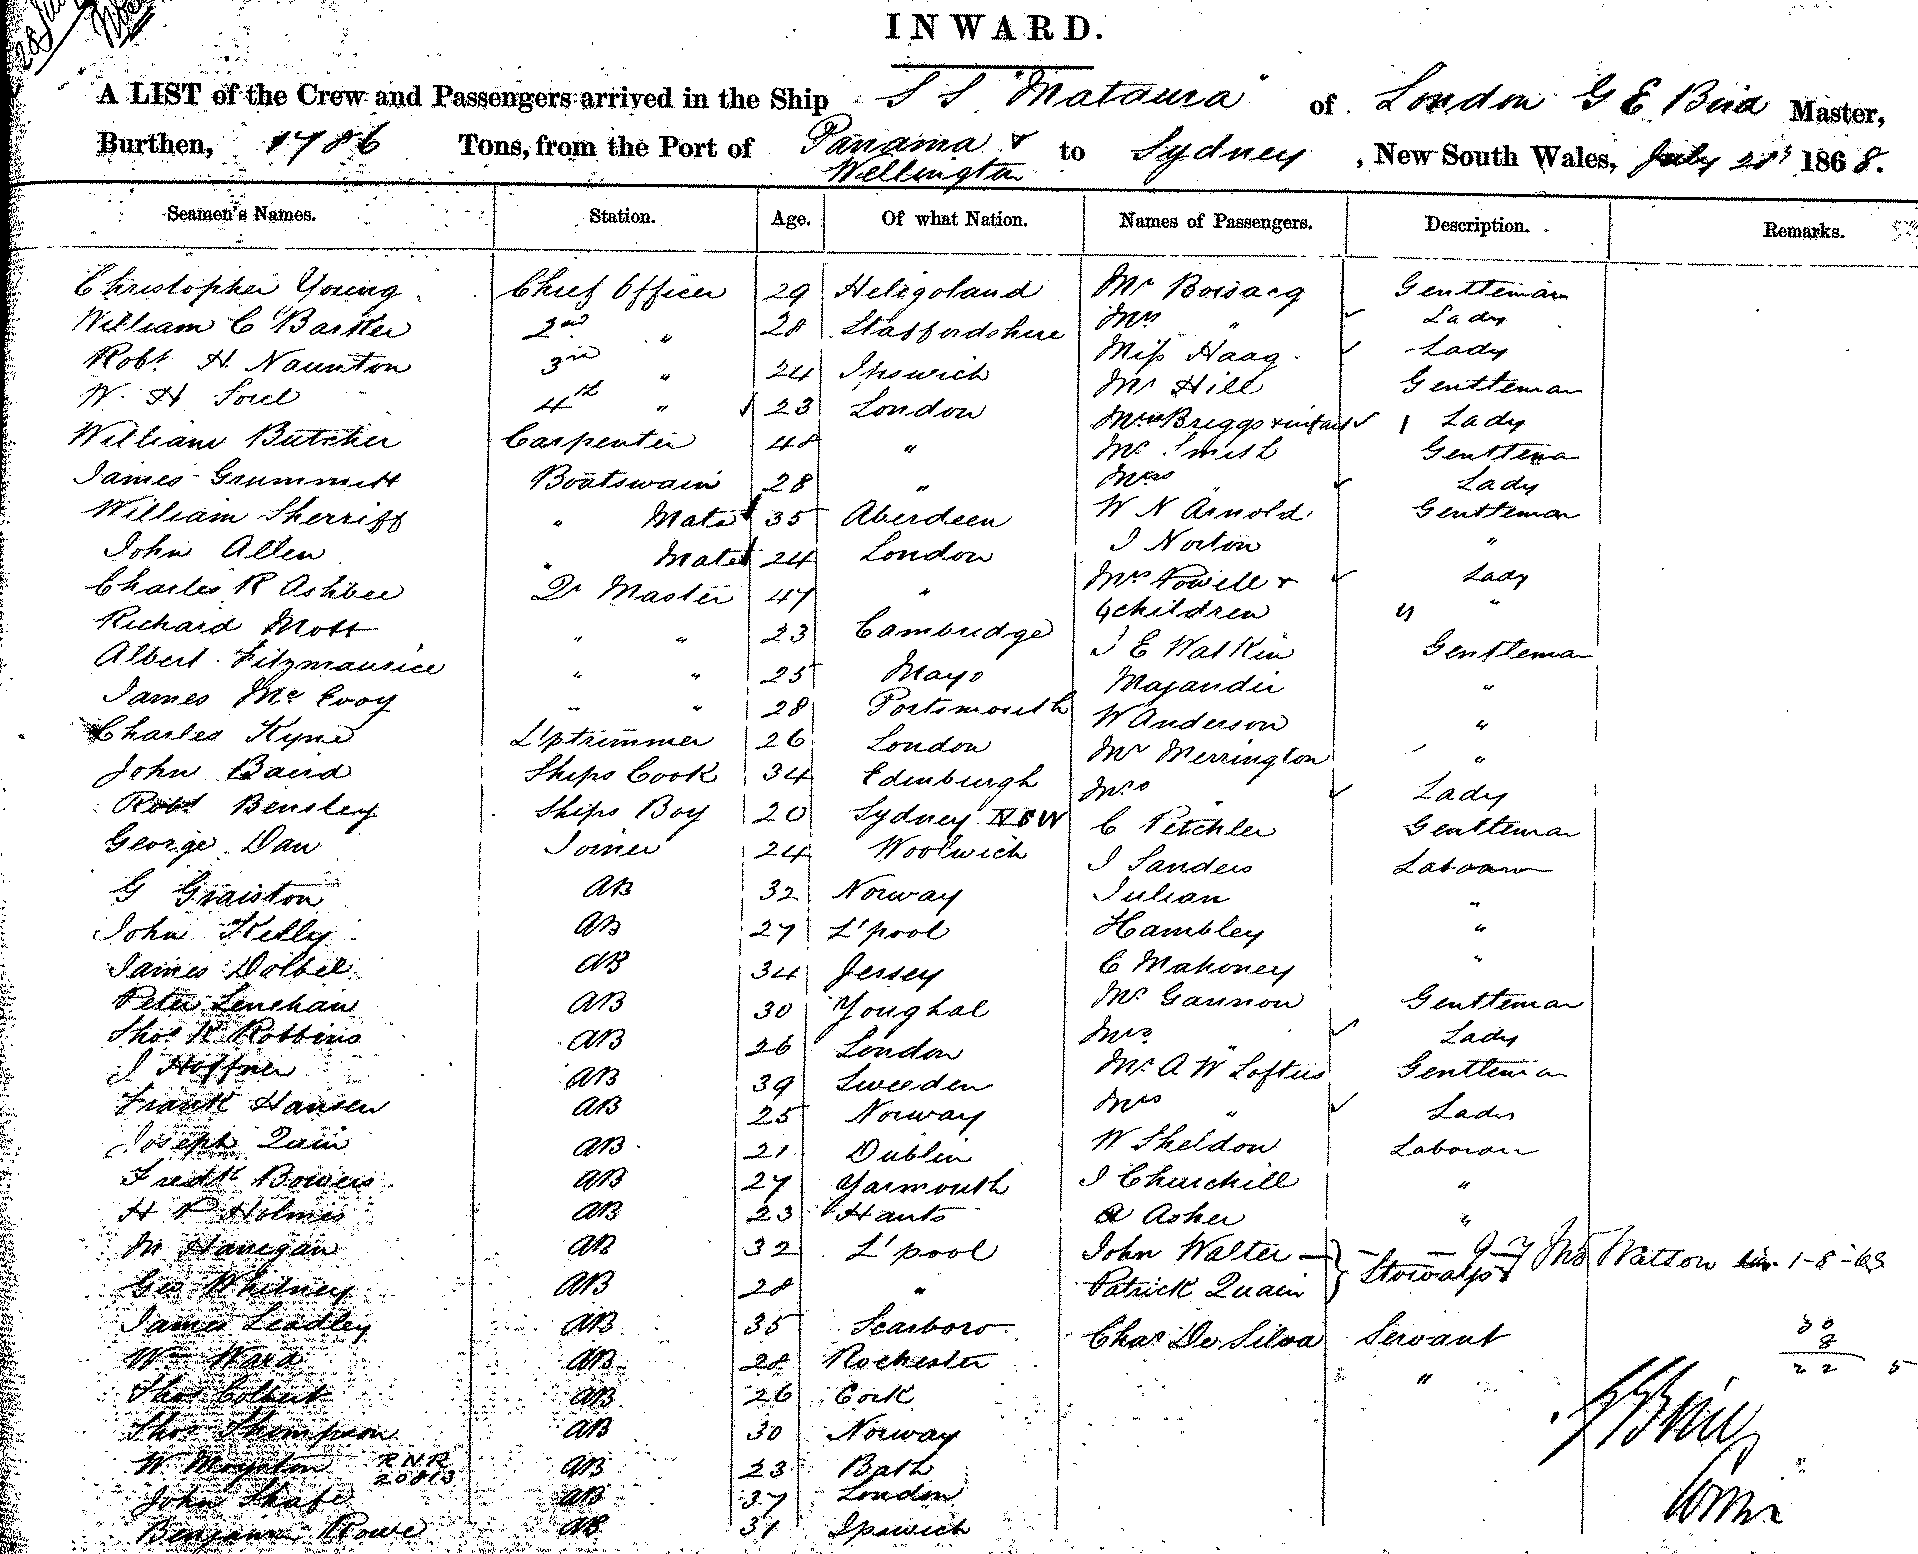 INWARD.
A LIST of the Crew and Passengers arrived in the Ship S S "Mataura" of London G E Bird Master,
Burthen, 1786 Tons, from the Port of Panama & Wellington to Sydney, New South Wales, July 1868.
Seamen's Names. Station. Age. Of what Nation. Names of Passengers. Description. Remarks.
Christopher Young Chief Officer 29 Heligoland Mr Gentleman
William C Barker 2nd " 28 Staffordshire Mrs " Lady
Robt H. Naunton 3rd " 24 Ipswich Miss Haag Lady
W. H Soul 4th " 23 London Mr Hill Gentleman
William Butcher Carpenter 48 " Mrs Briggs & infant 1 Lady
James Grummitt Boatswain 28 " Mr Smith Gentleman
William Sherriff " Mate 35 Aberdeen Mrs " Lady
John Allen " Mate 24 London W N Arnold Gentleman
Charles R Ashbee Qr Master 47 " J Norton "
Richard Mott " " 23 Cambridge Mrs Powell & Lady
4 children "
Albert Fitzmaurice " " 25 Mayo J E Watkin Gentleman
James McEvoy " " 28 Portsmouth Majandie "
Charles Kyne L'ptrimmer 26 London W Anderson "
John Baird Ships Cook 34 Edinburgh Mr Merrington "
Robt Bensley Ships Boy 20 Sydney NSW Mrs " Lady
George Dan Joiner 24 Woolwich C Petchler Gentleman
G Graiston AB 32 Norway J Sanders Laborer
John Kelly AB 27 L'pool Julian "
James Dolbel AB 34 Jersey Hambley "
Peter Lenehan AB 30 Youghal C Mahoney "
Thos R Robbins AB 26 London Mr Gannon Gentleman
J Hoffner AB 39 Sweeden Mrs " Lady
Frank Hansen AB 25 Norway Mr A W Loftus Gentleman
Joseph Quin AB 21 Dublin Mrs " Lady
Fredk Bowers AB 27 Yarmouth W Sheldon Laborer
H P Holmes AB 23 Hants J Churchill "
M Hanegan AB 32 L'pool A Asher "
Geo Whitney AB 28 " John Walter Stowaways Watson 1-8-68
James Leadley AB 35 Scarboro Patrick Quain
Wm Ward AB 28 Rochester Chas De Silva Servant
Thos Colbert AB 26 Cork "
Thos Thompson AB 30 Norway
W Moyston RNR 20813 AB 23 Bath
John Shafe AB 37 London
Benjamin Rowe AB 31 Ipswich
30
8
22